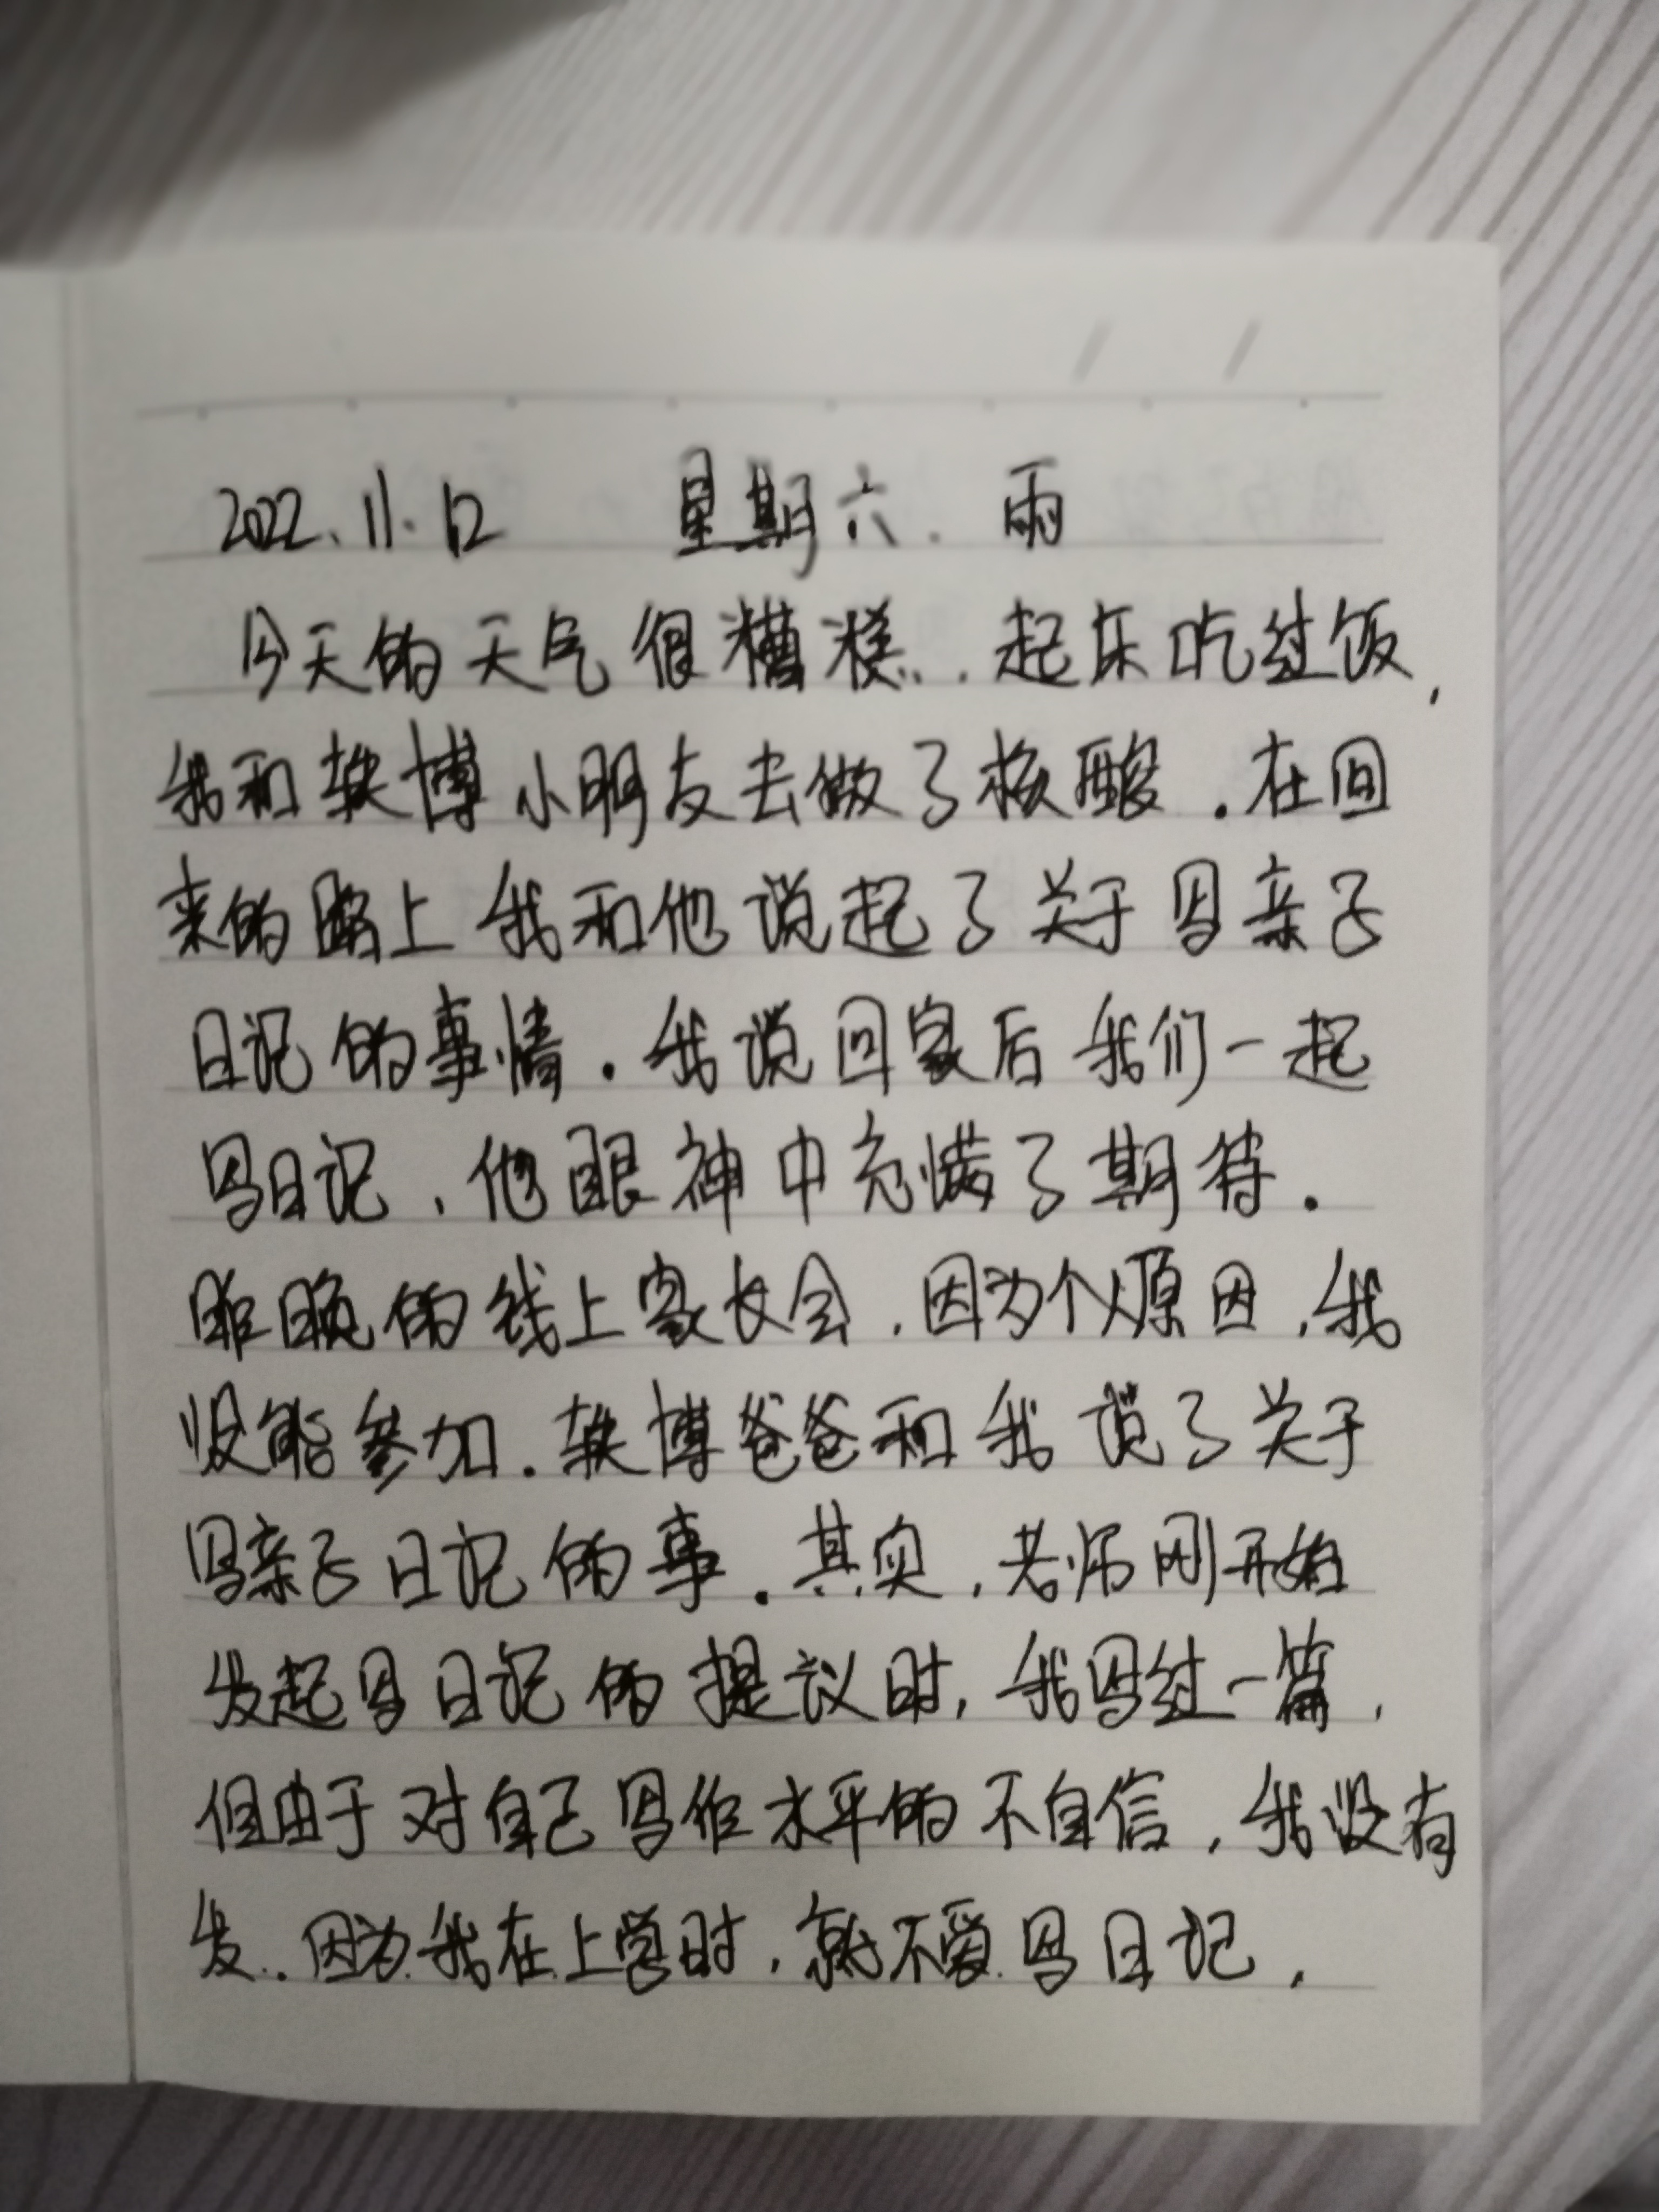 2022.11.12 星期六. 雨
今天的天气很糟糕. 起床吃过饭,
我和轶博小朋友去做了核酸.在回
来的路上我和他说起了关于写亲子
日记的事情.我说回家后我们一起
写日记,他眼神中充满了期待.
昨晚的线上家长会,因为个人原因,我
没能参加.轶博爸爸和我说了关于
写亲子日记的事.其实,老师刚开始
发起写日记的提议时,我写过一篇,
但由于对自己写作水平的不自信,我没有
发.因为我在上学时,就不爱写日记,